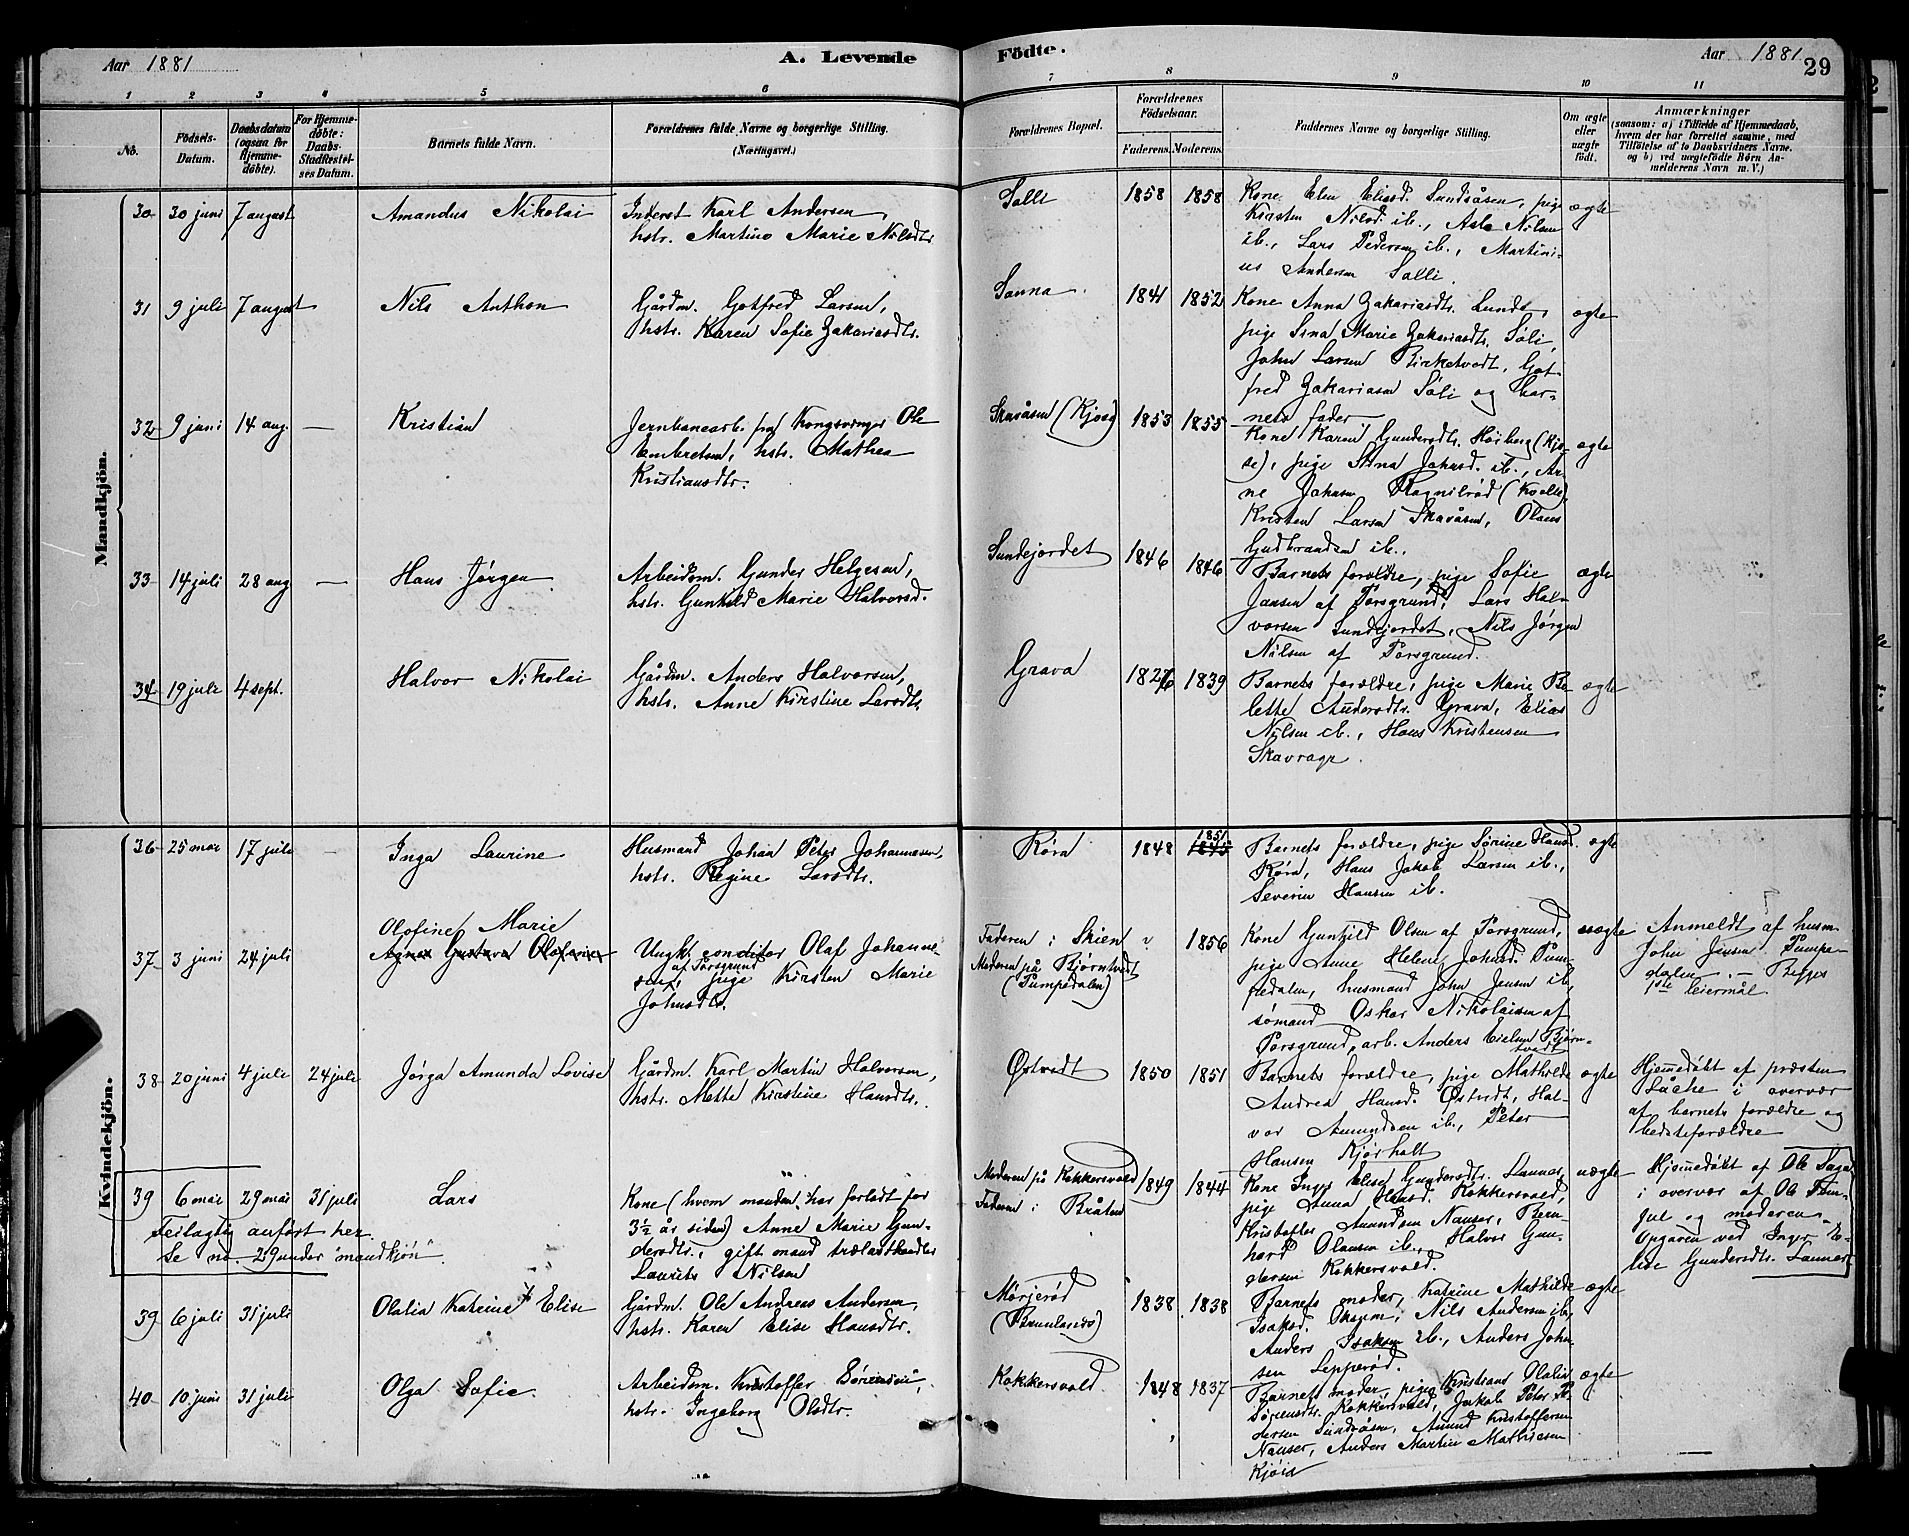 Aar 1881
A. Levende
Födte.
Aar 1881
29
1 2 3 4 5 6
7 8 9 10 11
No.
Födsels-
Datum.
Daabsdatum
(ogsaa for
Hjemme-
döbte).
For Hjemme-
döbte:
Daabs-
Stadfæstel-
ses Datum.
Barnets fulde Navn.
Forældrenes fulde Navne og borgerlige Stilling.
(Næringsvei.)
Forældrenes Bopæl.
Forældrenes
Födselsaar.
Faderens. Moderens.
Faddernes Navne og borgerlige Stilling.
Om ægte
eller
uægte
födt.
Anmærkninger
(saasom: a) i Tilfælde af Hjemmedaab,
hvem der har forrettet samme, med
Tilföielse af to Daabsvidners Navne.
og b) ved uægtefödte Börn An-
melderens Navn m. V.)
Mandkjön.
30 30 juni 7 august
Amandus Nikolai
Inderst Karl Andersen,
hstr. Martine Marie Nilsdtr.
Solli
1858 1858
Kone Elen Eliasd. Sundsåsen, pige
Kirsten Nilsd. ib., Asle Nilsen
ib., Lars Pedersen ib., Martini-
us Andersen Solli.
ægte
31 9 juli 7 august
Nils Anthon
Gårdm. Gotfred Larsen,
hstr. Karen Sofie Zakariasdtr.
Sanna
1841 1852
Kone Anna Zakariasdtr. Lunde,
pige Sina Marie Zakariasdtr. Søli,
John Larsen Birketvedt, Got-
fred Zakariasen Søli og bar-
nets fader
ægte
32 9 juni 14 aug. —
Kristian
Jernbanearb. fra Kongsvinger Ole
Embretsen, hstr. Mathea
Kristiansdtr.
Skavåsen (Kjose)
1853 1855
Kone Karen Gundersdtr. Høiberg (Kjo-
se), pige Stina Johnsd. ib., Ar-
ne Johnsen Ragnilrød (Kvelle)
Kristen Larsen Skavåsen, Olaus
Gudbrandsen ib.
ægte
33 14 juli 28 aug —
Hans Jørgen
Arbeidsm. Gunder Helgesen,
hstr. Gunhild Marie Halvorsd.
Sundejordet
1846 1846
Barnets forældre, pige Sofie
Jansen af Porsgrund, Lars Hal-
vorsen Sundejordet, Nils Jørgen
Nilsen af Porsgrund.
ægte
34 19 juli 4 sept.
Halvor Nikolai
Gårdm. Anders Halvorsen,
hstr. Anne Kirstine Larsdtr.
Grava
1826 1839
Barnets forældre, pige Marie Be-
lette Andersdtr. Grava, Elias
Nilsen ib., Hans Kristensen
Skavrage.
ægte
Kvindekjön.
36 25 mai 17 juli —
Inga Laurine
Husmand Johan Peter Johannesen,
hstr. Regine Larsdtr.
Røra
1848
1851
1845
Barnets forældre, pige Sørine Hansd.
Røra, Hans Jakob Larsen ib.,
Severin Hansen ib.
ægte
37 3 juni 24 juli
Olofine Marie
Agnes Gustava Olefarie
Ungk. conditor Olaf Johanne-
sen, af Porsgrund pige Kirsten Marie
Johnsdtr.
Faderen i Skien
Moderen på Bjørntvedt
(Pumpedalen)
1856
Kone Gunhild Olsen af Porsgrund,
pige Anne Helene Johnsd. Pum-
pedalen, husmand John Jensen ib,
sømand Oskar Nikolaisen af
Porsgrund, arb. Anders Nielsen Bjørn-
tvedt
uægte
Anmeldt af husm.
John Jensen Pumpe-
dalen. — Begges
1ste leiermål
38 20 juni 4 juli 24 juli
Jørga Amunda Lovise
Gårdm. Karl Martin Halvorsen,
hstr. Mette Kirstine Hansdtr.
Østvedt
1850 1851
Barnets forældre, pige Mathilde
Andrea Hansd. Østvedt, Hal-
vor Amundsen ib., Peter
Hansen Kjørholt
ægte
Hjemmedøbt af præsten
Låche i overvær
af barnets forældre og
bedsteforældre
39 6 mai 29 mai 31 juli
Feilagtig anført her.
Se no. 29 under "mandkjön".
Lars
Kone (hvem manden har forladt for
3½ år siden) Anne Marie Gun-
dersdtr., gift mand trælasthandler
Laurits Nilsen
Moderen på Kokkersvold
Faderen i Bråten
1849 1844
Kone Inger Elise Gundersdtr. Lannar,
pige Anna Olausd. Kokkersvold,
Kristoffer Amundsen Nauser, Bern-
hard Olausen ib., Halvor Gun-
dersen Kokkersvold.
uægte
Hjemmedøbt af Ole Saga
i overvær af Ole Tem-
jul og moderen.
Opgaven ved Inger E-
lise Gundersdtr. Lannar
39 6 juli 31 juli
Olalia Katrine Elise
Gårdm. Ole Andreas Andersen,
hstr. Karen Elise Hansdtr.
Mørjerød
(Brunlanes)
1838 1838
Barnets moder, Katrine Mathilde
Isaksd. Skaun, Nils Andersen ib,
Anders Isaksen ib., Anders John-
sen Lepperød.
ægte
40 10 juni 31 juli
Olga Sofie
Arbeidsm. Kristoffer Sørensen,
hstr. Ingeborg Olsdtr.
Kokkersvold
1848 1837
Barnets moder, pige Kristiane Olalia
Sørensdtr. Kokkersvold, Jakob Peter Pe-
dersen Sundsåsen, Amund Kristoffersen
Nauser, Anders Martin Mathiesen
Kjøis
ægte